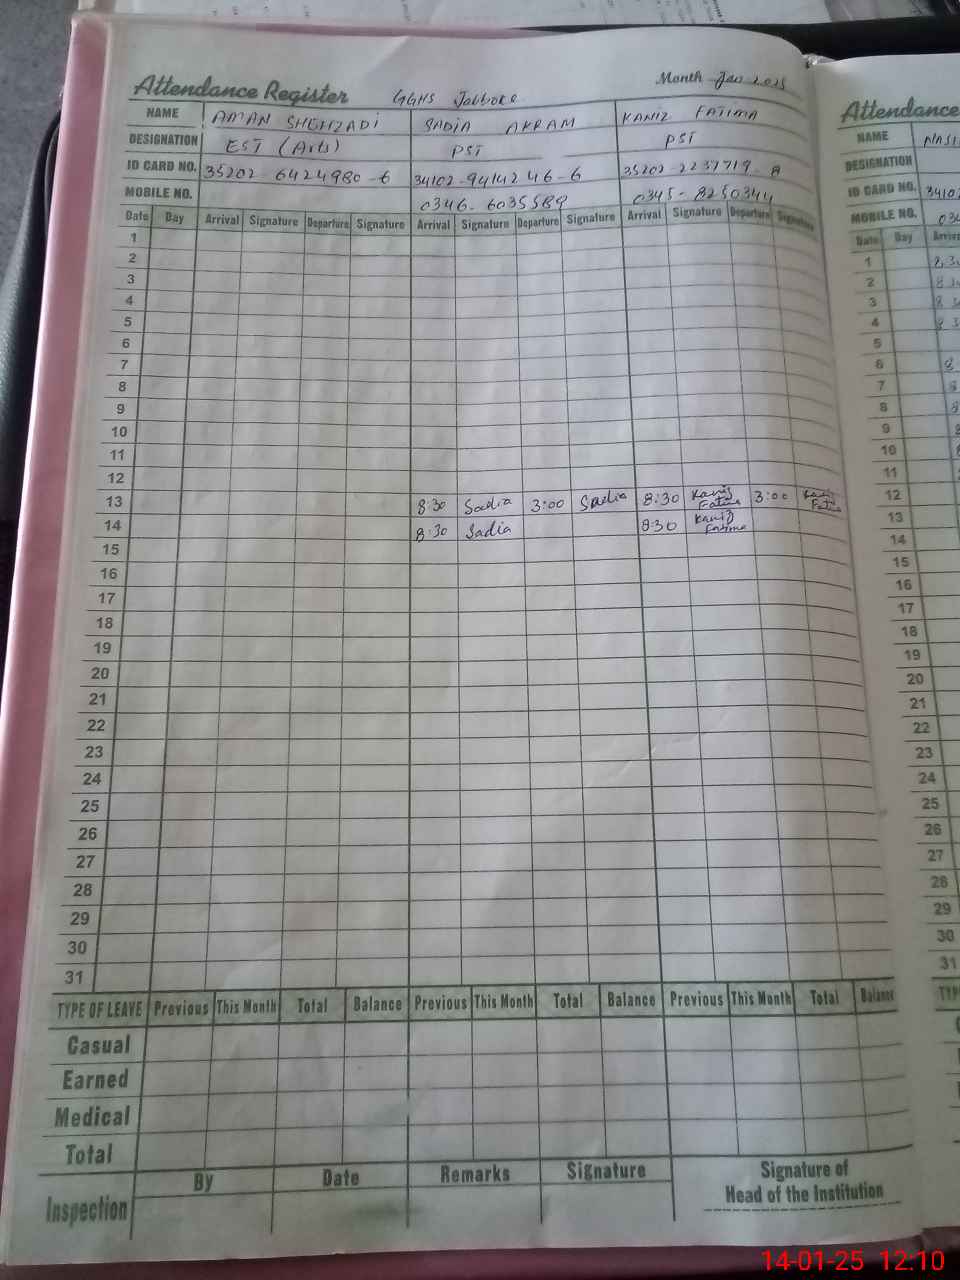 Attendance Register GGHS Jabboke Month Jan 2025
NAME AMAN SHEHZADI SADIA AKRAM KANIZ FATIMA
DESIGNATION EST (Arts) PST PST
ID CARD NO. 35202-6424980-6 34102-9414246-6 35202-2237719-8
MOBILE NO. 0346-6035589 0345-8250344
Date Day Arrival Signature Departure Signature Arrival Signature Departure Signature Arrival Signature Departure Signature
1
2
3
4
5
6
7
8
9
10
11
12
13 8:30 Sadia 3:00 Sadia 8:30 Kaniz Fatima 3:00 Kaniz Fatima
14 8:30 Sadia 830 Kaniz Fatima
15
16
17
18
19
20
21
22
23
24
25
26
27
28
29
30
31
TYPE OF LEAVE Previous This Month Total Balance Previous This Month Total Balance Previous This Month Total Balance
Casual
Earned
Medical
Total
Inspection By Date Remarks Signature Signature of
Head of the Institution
Attendance
NAME
DESIGNATION
ID CARD NO. 3410
MOBILE NO.
Date Day
1
2
3
4
5
6
7
8
9
10
11
12
13
14
15
16
17
18
19
20
21
22
23
24
25
26
27
28
29
30
31
14-01-25 12:10